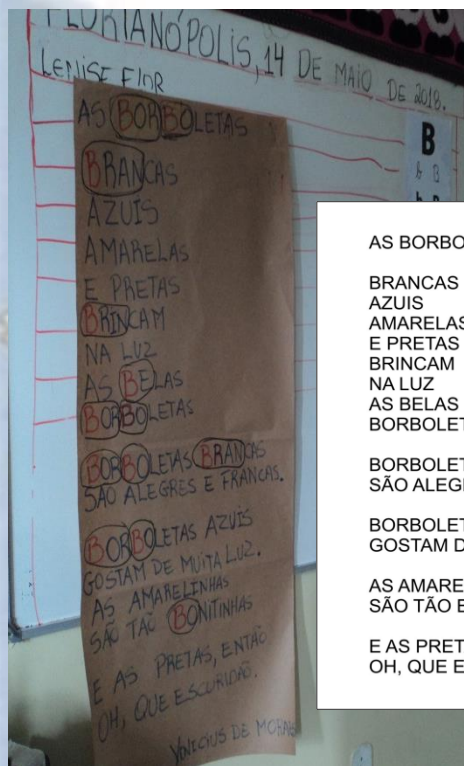 FLORIANÓPOLIS, 14 DE MAIO DE 2018.
LENISE FLOR
AS BORBOLETAS
BRANCAS
AZUIS
AMARELAS
E PRETAS
BRINCAM
NA LUZ
AS BELAS
BORBOLETAS
BORBOLETAS BRANCAS
SÃO ALEGRES E FRANCAS.
BORBOLETAS AZUIS
GOSTAM DE MUITA LUZ.
AS AMARELINHAS
SÃO TÃO BONITINHAS
E AS PRETAS, ENTÃO
OH, QUE ESCURIDÃO.
VINICIUS DE MORAIS
B
b B
b B
AS BORBO
BRANCAS
AZUIS
AMARELAS
E PRETAS
BRINCAM
NA LUZ
AS BELAS
BORBOLET
BORBOLET
SÃO ALEG
BORBOLET
GOSTAM D
AS AMARE
SÃO TÃO
E AS PRET
OH, QUE E